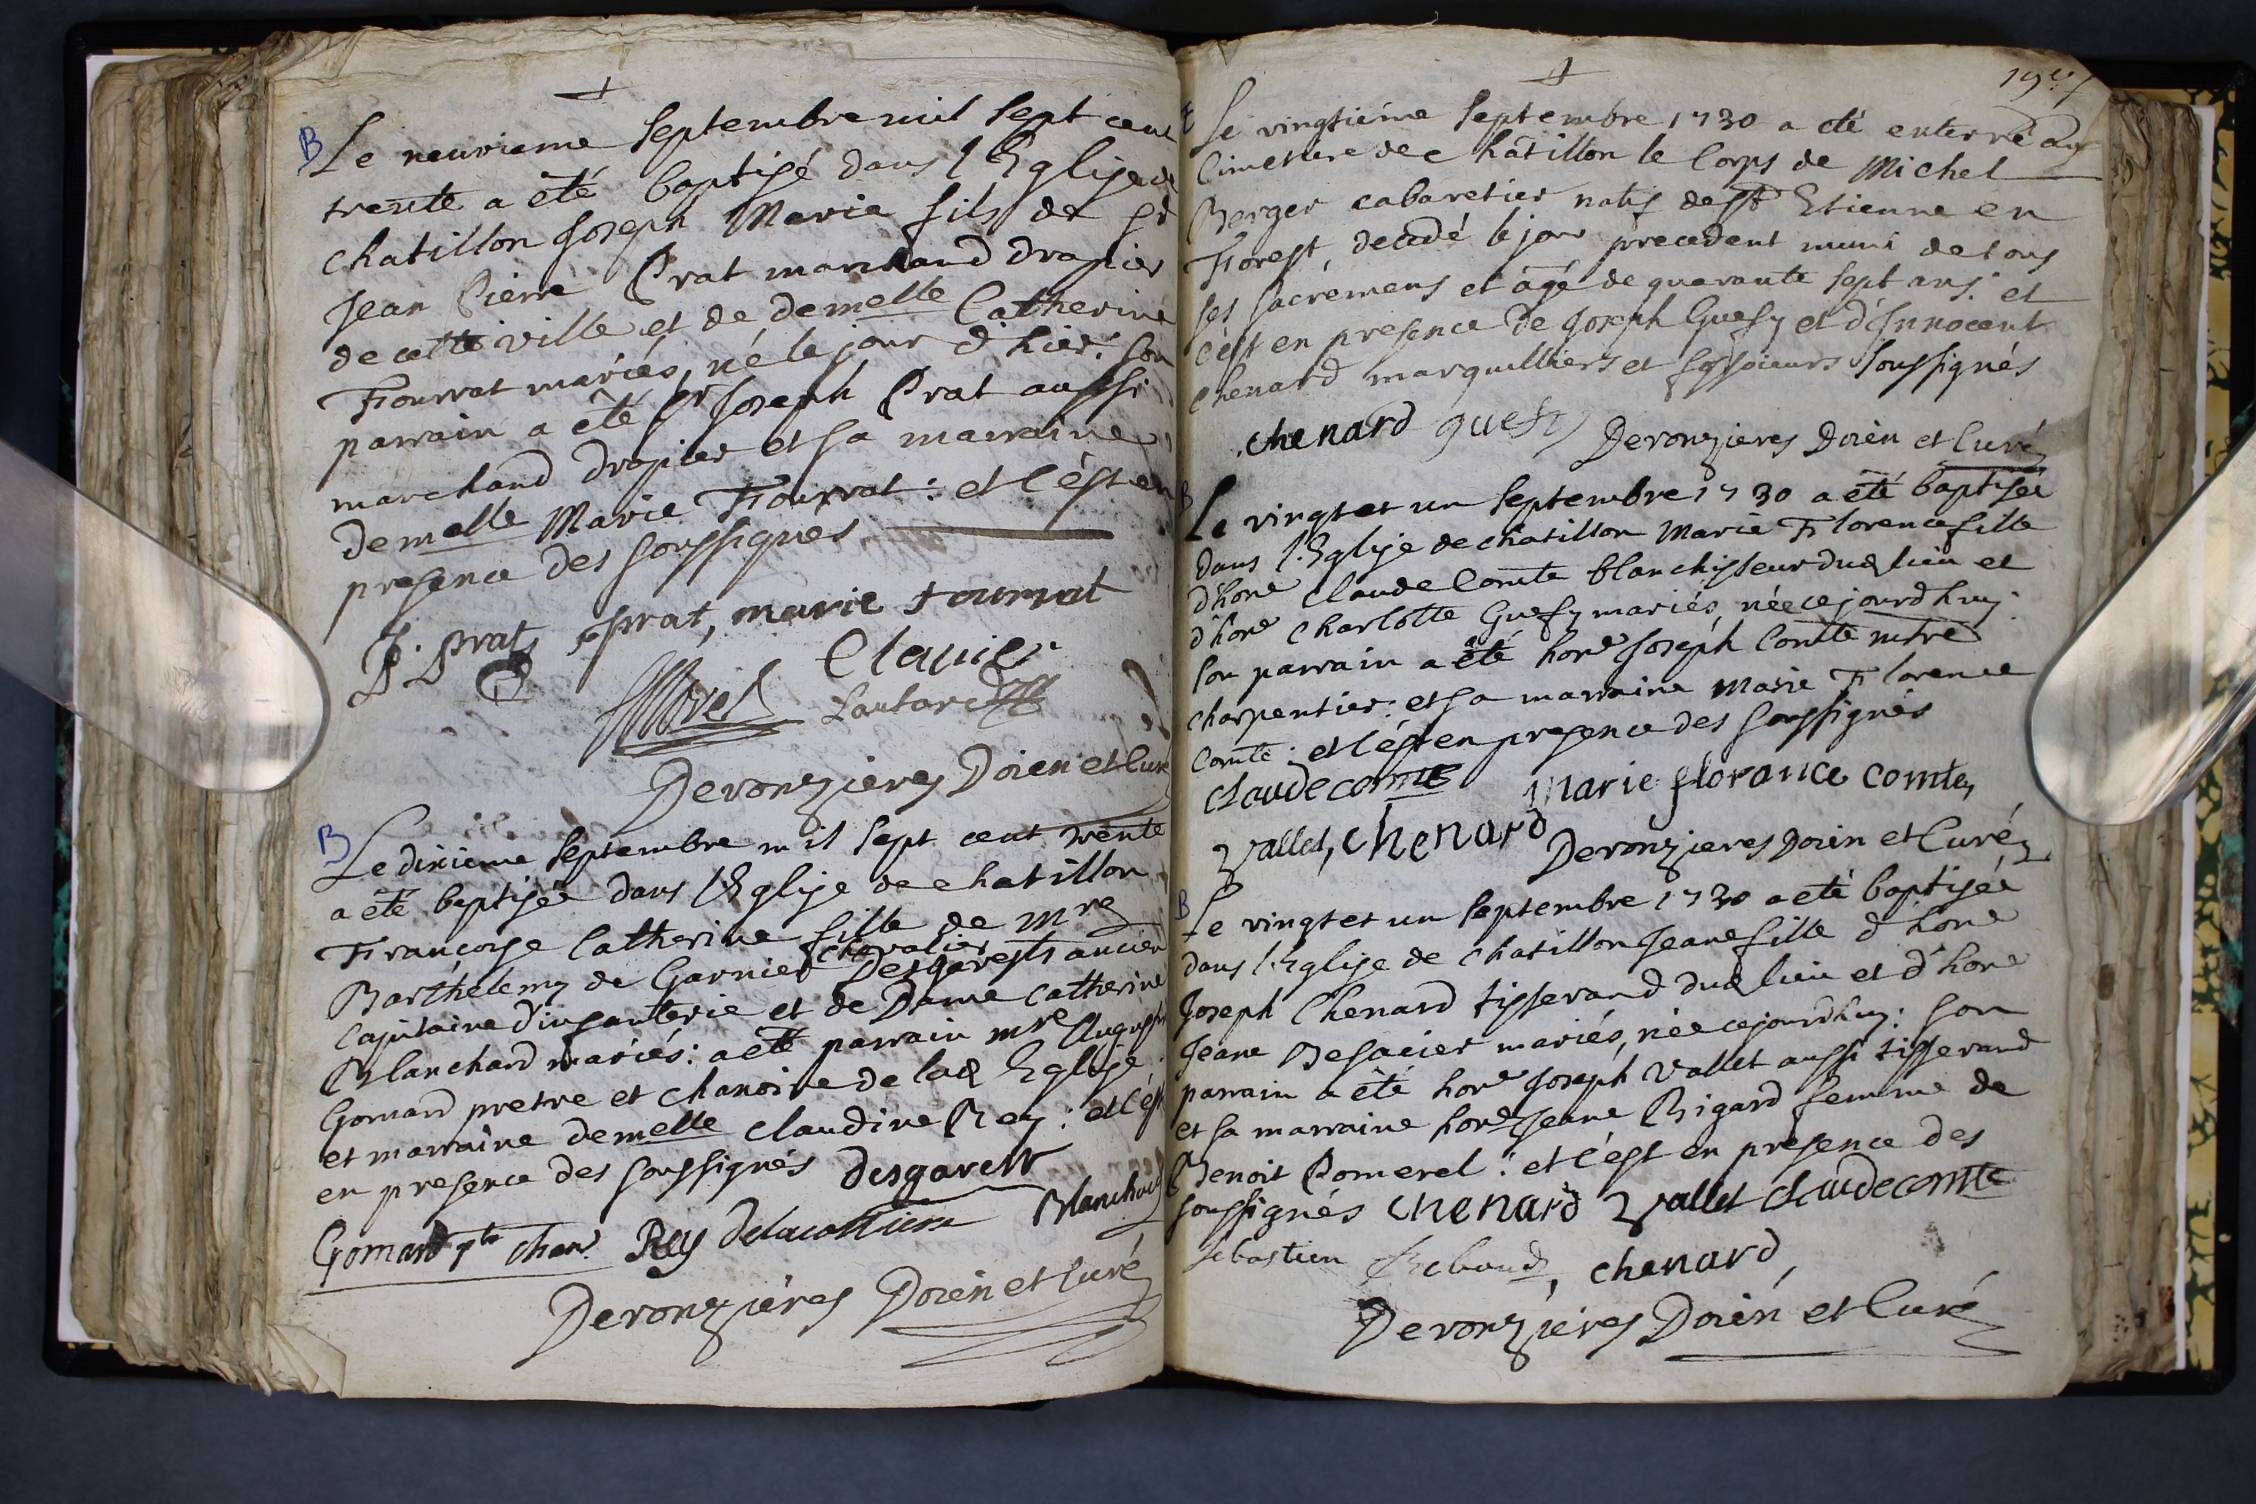 B Le neuvieme Septembre mil Sept cent
trente a été baptisé dans l'Eglise de
chatillon Joseph Marie fils de Sr
Jean Pierre Prat marchand drapier
de cette ville et de demelle Catherine
Fourrat mariés, né le jour d'hier: Son
parrain a été Sr Joseph Prat aussi
marchand drapier et sa marraine
demelle Marie Fourrat: et c'est en
presence des soussignés
J. prat, prat, marie fourrat
Clavier
Morel Lautard
Deronzieres Doien et Curé
B Le dixieme Septembre mil Sept cent trente
a été baptisée dans l'Eglise de chatillon
Françoise Catherine fille de Mre
Barthelemy de Garnier chevalier Desgarests ancien
Capitaine d'infanterie et de Dame Catherine
Blanchard mariés: a été parrain mre
Gomard pretre et chanoine de lad Eglise
et marraine demelle claudine Rey: et c'est
en presence des soussignés desgarest
Gomard ptre chane Rey Blanchard
Deronzières Doien et Curé
19
E Le vingtième Septembre 1730 a été enterré au
Cimetiere de Châtillon le Corps de Michel
Berger cabaretier natif de St Etienne en
Forest, decedé le jour precedent muni de tous
ses sacremens et âgé de quarante sept ans: et
c'est en presence de Joseph Guefy et d'Innocent
chenard marguilliers et fossoieurs soussignés
chenard guefy Deronzieres Doien et Curé
B Le vingt et un Septembre 1730 a été baptisée
dans l'Eglise de chatillon Marie Florence fille
d'hone Claude Comte blanchisseur dud lieu et
d'hone Charlotte Guefy mariés, née cejourdhuy:
Son parrain a été hone Joseph Comte mtre
charpentier: et sa marraine Marie Florence
Comte: et c'est en presence des soussignés
claude comte Marie florance comte,
vallet, chenard Deronzieres Doien et Curé
B Le vingt et un Septembre 1730 a été baptisée
dans l'Eglise de Chatillon Jeane fille d'hone
Joseph Chenard tisserand dud lieu et d'hone
Jeane Besacier mariés, née cejourdhuy: Son
parrain a été hone Joseph Vallet aussi tisserand
et sa marraine hone Jeane Bigard femme de
Benoit Pomerel: et c'est en presence des
soussignés chenard vallet claude comte
Sebastien, chenard,
Deronzières Doien et Curé